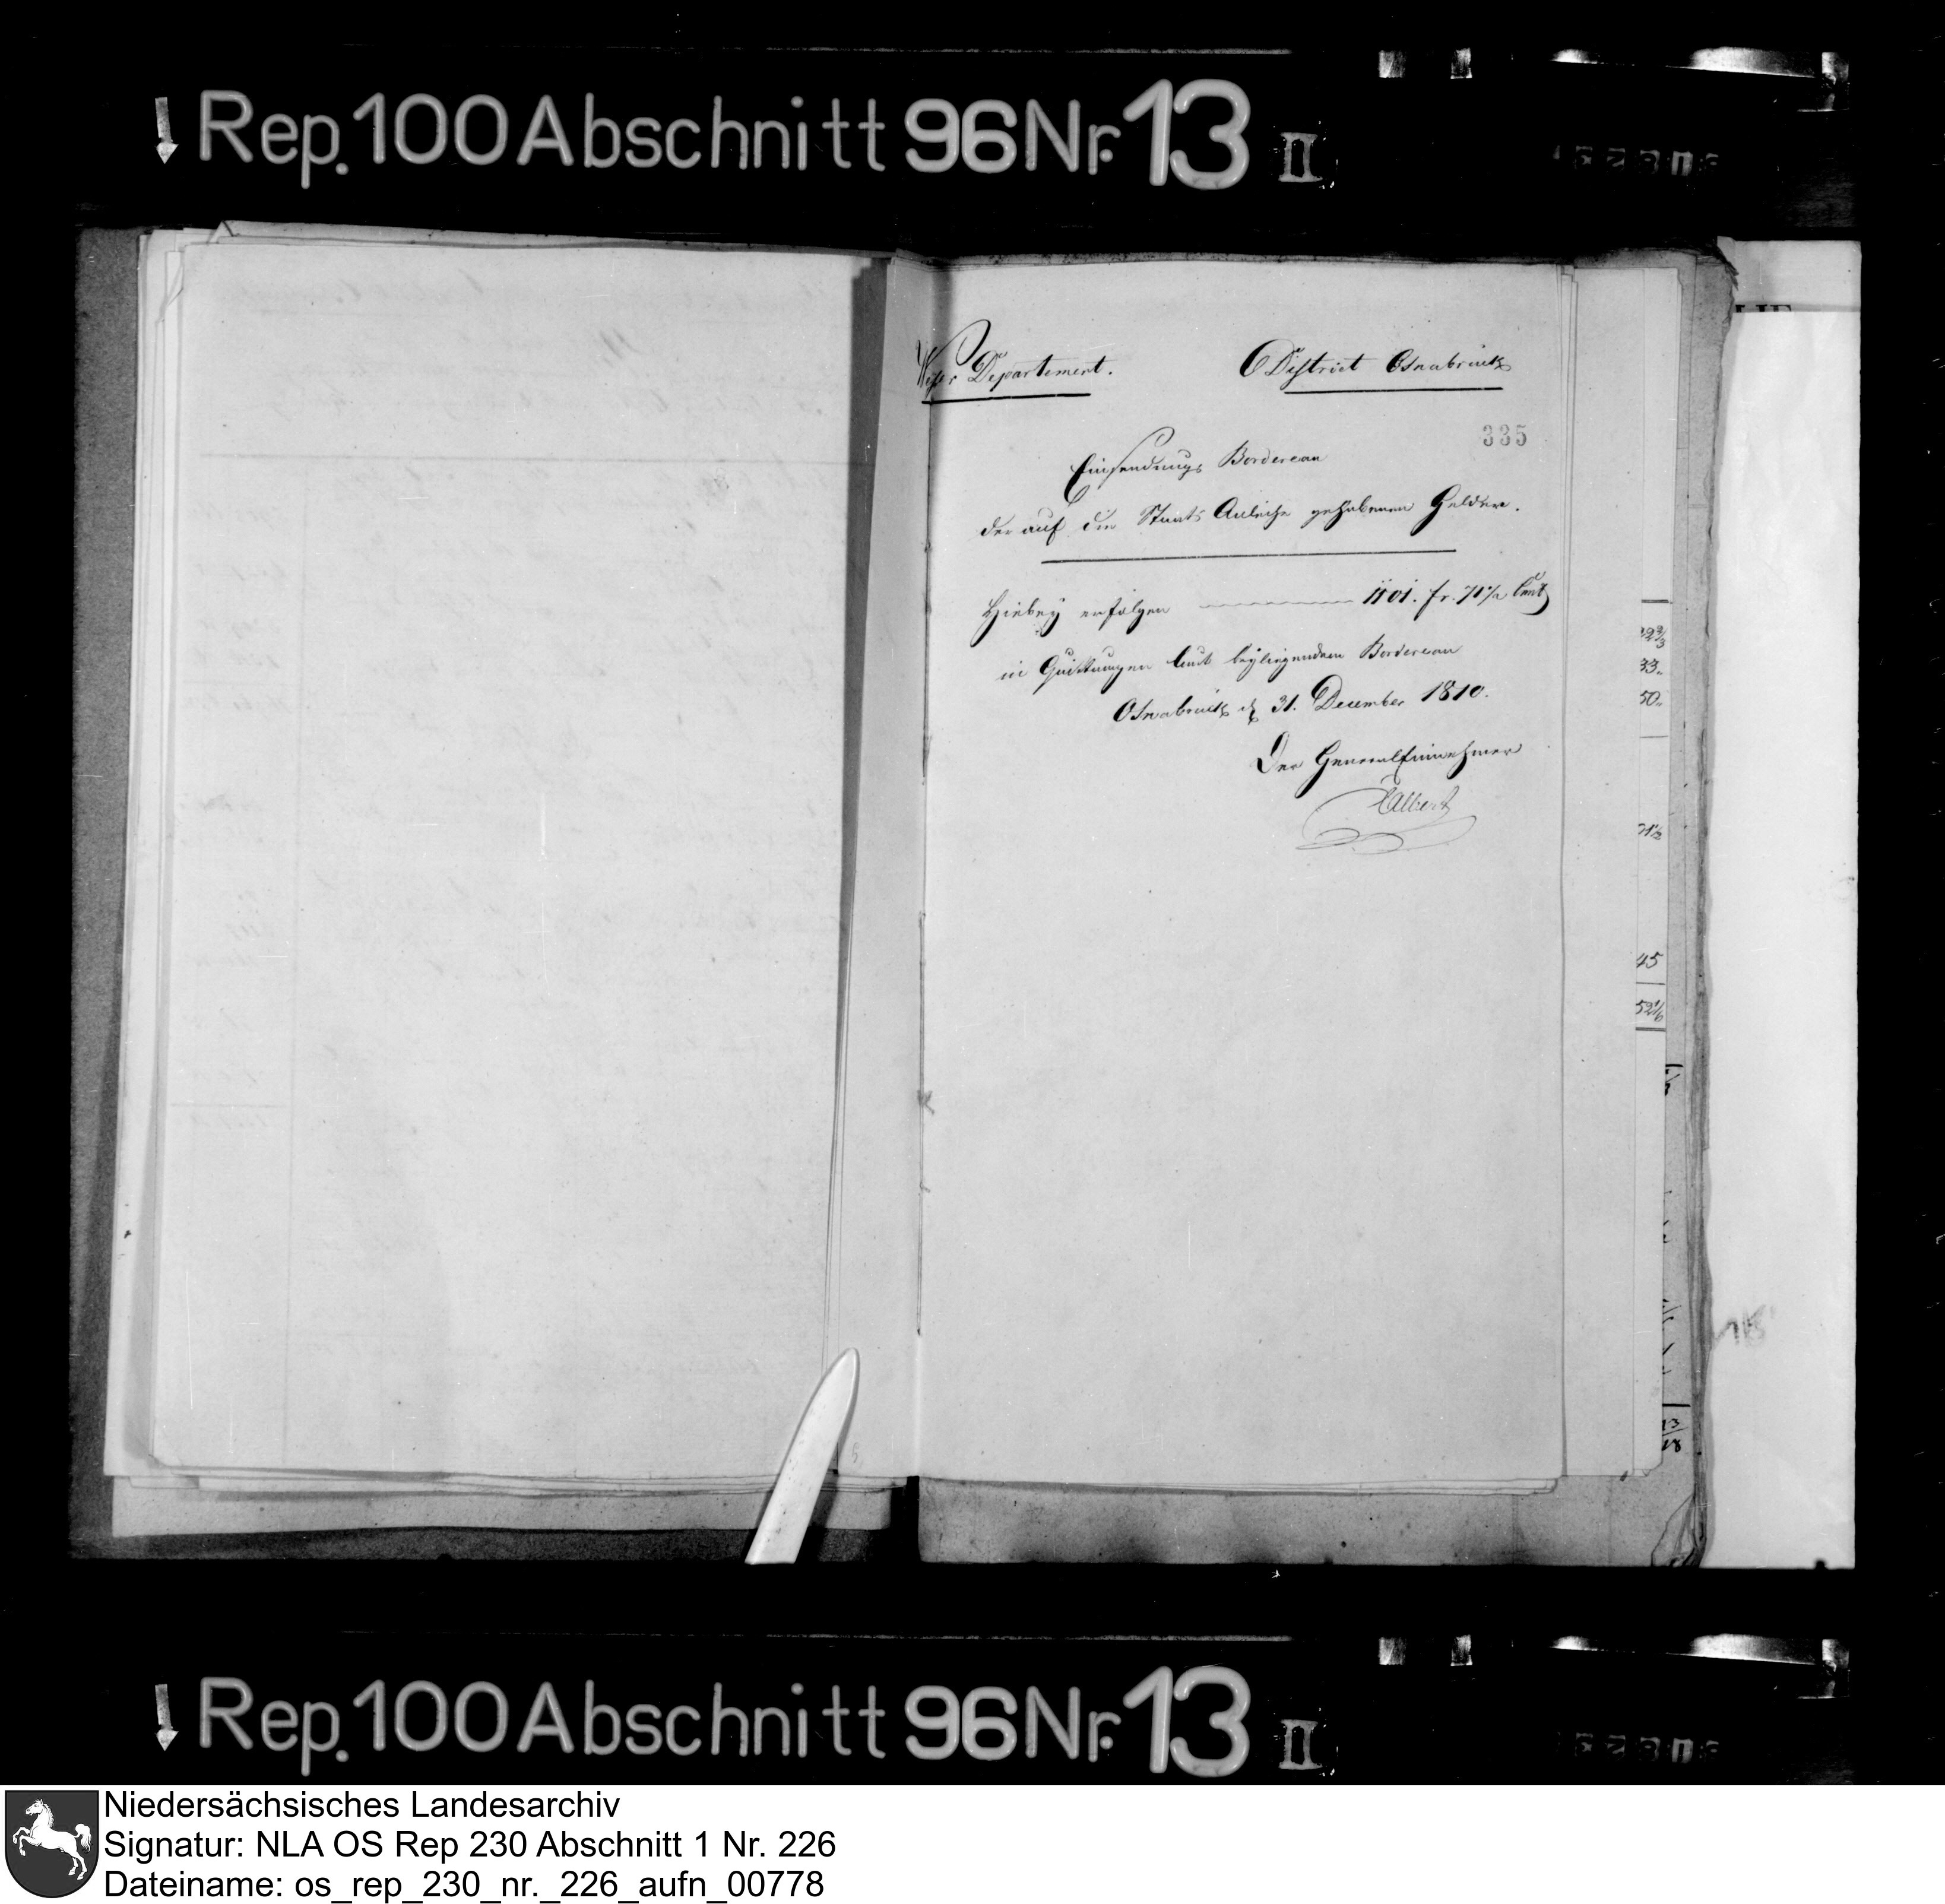 Rep. 100 Abschnitt 96 Nr. 13 II
Weser Departement. District Osnabrück
335
Einsendungs Bordereau
der auf die Staats Anleihe gehobenen Gelder.
Hiebey erfolgen 1101. fr. 71½ Cent
in Quittungen laut beyliegendem Bordereau
Osnabrück d 31. December 1810.
Der GeneralEinnehmer
33.
50.
45
52 1/6
Rep. 100 Abschnitt 96 Nr. 13 II
Niedersächsisches Landesarchiv
Signatur: NLA OS Rep 230 Abschnitt 1 Nr. 226
Dateiname: os_rep_230_nr._226_aufn_00778